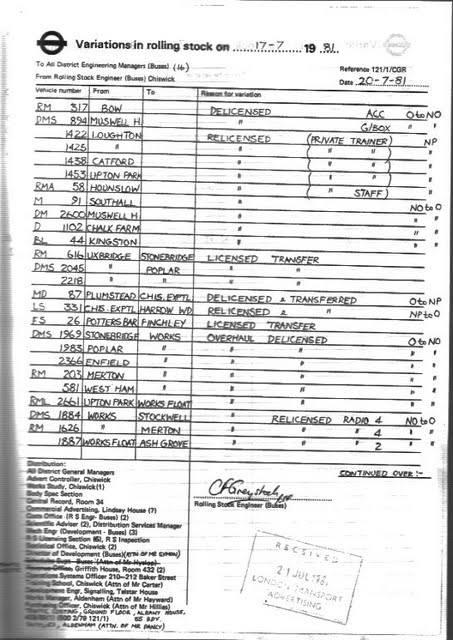 Variations in rolling stock on 17-7 1981
To All District Engineering Managers (Buses) (16)
Reference 121/1/CGR
From Rolling Stock Engineer (Buses) Chiswick
Date 20-7-81
Vehicle number From To Reason for variation
RM 317 BOW DELICENSED ACC O to NO
DMS 894 MUSWELL H. " G/BOX "
1422 LOUGHTON RELICENSED (PRIVATE TRAINER) NP
1425 " " ( " " ) "
1438 CATFORD " ( " " ) "
1453 UPTON PARK " ( " " ) "
RMA 58 HOUNSLOW " ( STAFF ) "
M 91 SOUTHALL " NO to O
DM 2600 MUSWELL H. " "
D 1102 CHALK FARM " "
BL 44 KINGSTON " "
RM 616 UXBRIDGE STONEBRIDGE LICENSED TRANSFER
DMS 2045 " POPLAR " "
2218 " " " "
MD 87 PLUMSTEAD CHIS. EXPTL DELICENSED & TRANSFERRED O to NP
LS 331 CHIS. EXPTL HARROW WD RELICENSED & " NP to O
FS 26 POTTERS BAR FINCHLEY LICENSED TRANSFER
DMS 1969 STONEBRIDGE WORKS OVERHAUL DELICENSED O to NO
1983 POPLAR " " " "
2366 ENFIELD " " " "
RM 203 MERTON " " " "
581 WEST HAM " " " "
RML 2661 UPTON PARK WORKS FLOAT " " "
DMS 1884 WORKS STOCKWELL " RELICENSED RADIO 4 NO to O
RM 1626 " MERTON " " " 4 " "
1887 WORKS FLOAT ASH GROVE " " " 2 "
CONTINUED OVER :-
Distribution:
All District General Managers
Advert Controller, Chiswick
Works Study, Chiswick (1)
Body Spec Section
Central Record, Room 34
Commercial Advertising, Lindsay House (7)
Office (R S Engr- Buses) (2)
Scientific Adviser (2), Distribution Services Manager
Engr (Development - Buses) (3)
Licensing Section (6), R S Inspection
Statistical Office, Chiswick (2)
of Development (Buses)
Office, Griffith House, Room 432 (2)
Operations Systems Officer 210-212 Baker Street
School, Chiswick (Attn of Mr Carter)
Development Engr, Signalling, Telstar House
Manager, Aldenham (Attn of Mr Hayward)
Officer, Chiswick (Attn of Mr Hillies)
GROUND FLOOR, ALBANY HOUSE,
55 BDY.
ALDENHAM (ATTN. OF MR DANCY)
Rolling Stock Engineer (Buses)
RECEIVED
21 JUL 1981
LONDON TRANSPORT
ADVERTISING